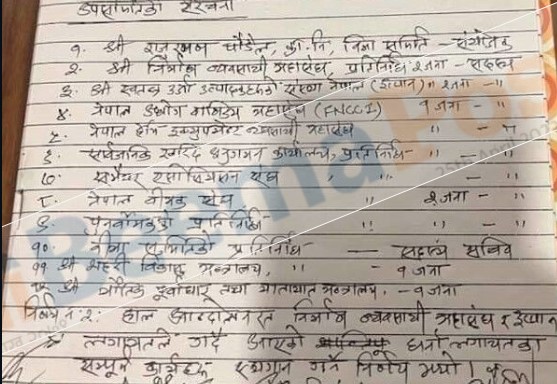 उपसमितिको संरचना
१. श्री राम पौडेल, का.नि, विमा समिति - संयोजक
२. श्री निर्माण व्यवसायी महासंघ, प्रतिनिधि २ जना - सदस्य
३. श्री स्वतन्त्र उर्जा उत्पादकहरुको संस्था नेपाल (ईप्पान) " २ जना - "
४. नेपाल उद्योग वाणिज्य महासंघ (FNCCI) १ जना - "
५. नेपाल हेभि इक्युपमेन्ट व्यवसायी महासंघ " - "
६. सार्वजनिक खरिद अनुगमन कार्यालय, प्रतिनिधि - " - "
७. सर्भेयर एसोसियसन संघ " " - "
८. नेपाल वीमक संघ " २ जना - "
९. पुनर्वीमकको प्रतिनिधि - " " - "
१०. वीमा समितिको प्रतिनिधि - सदस्य सचिव
११ श्री शहरी विकास मन्त्रालय, " - १ जना
१२ श्री भौतिक पूर्वाधार तथा यातायात मन्त्रालय. - १ जना
निर्णय नं: २: हाल आन्दोलनरत निर्माण व्यवसायी महासंघ र इप्पान
लगायतले गर्दै आएको धर्ना लगायतका
सम्पूर्ण कार्यहरु स्थगन गर्ने निर्णय गर्यो।
iBeemaPost